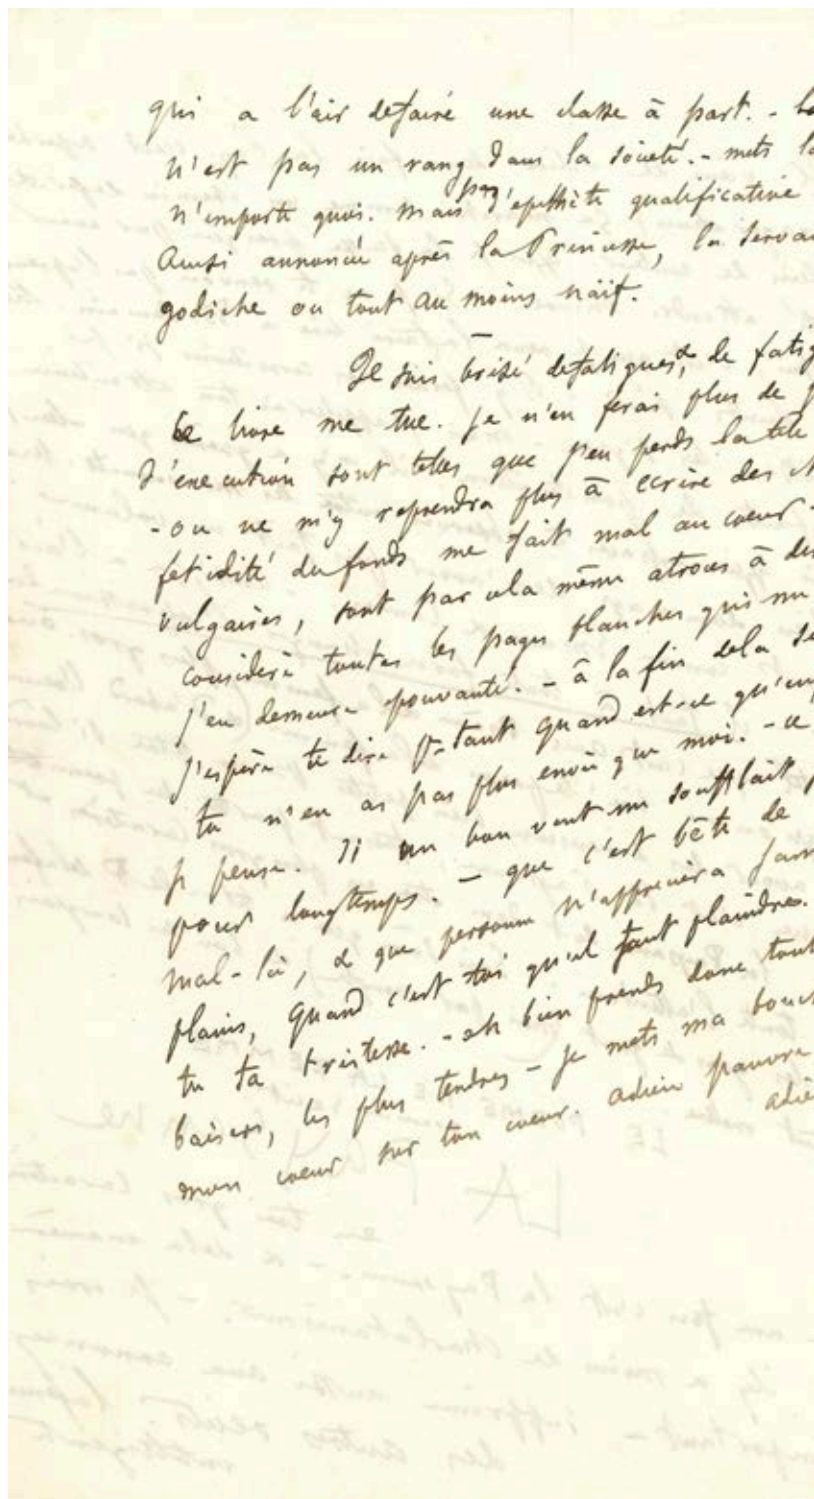 qui a l'air defaire une classe à part. -
n'est pas un rang dans la société. - mets
n'importe quoi. mais pas d'epithète qualificative
Ainsi annoncée après la Princesse, la Serva
godiche ou tout au moins naïf.
Je suis brisé defatigues, & de fatig
Ce livre me tue. je n'en ferai plus de
d'execution sont telles que j'en perds la tête
- on ne m'y reprendra plus à écrire des
fetidité du fonds me fait mal au coeur -
vulgaires, sont par cela même atroces à
considère toutes les pages blanches qui me
j'en demeure épouvanté. - à la fin dela
j'espère te dire p-tant quand est-ce qu'en
tu n'en as pas plus envie que moi. - ce
je pense. Si un bon vent me soufflait
pour longtemps. - que c'est bête de
mal-là, & que personne n'appréciera
plains, quand c'est toi qu'il faut plaindre.
tu ta tristesse. - eh bien prends donc
baisers, les plus tendres - je mets ma bouc
mon coeur sur ton coeur. adieu pauvre
adie